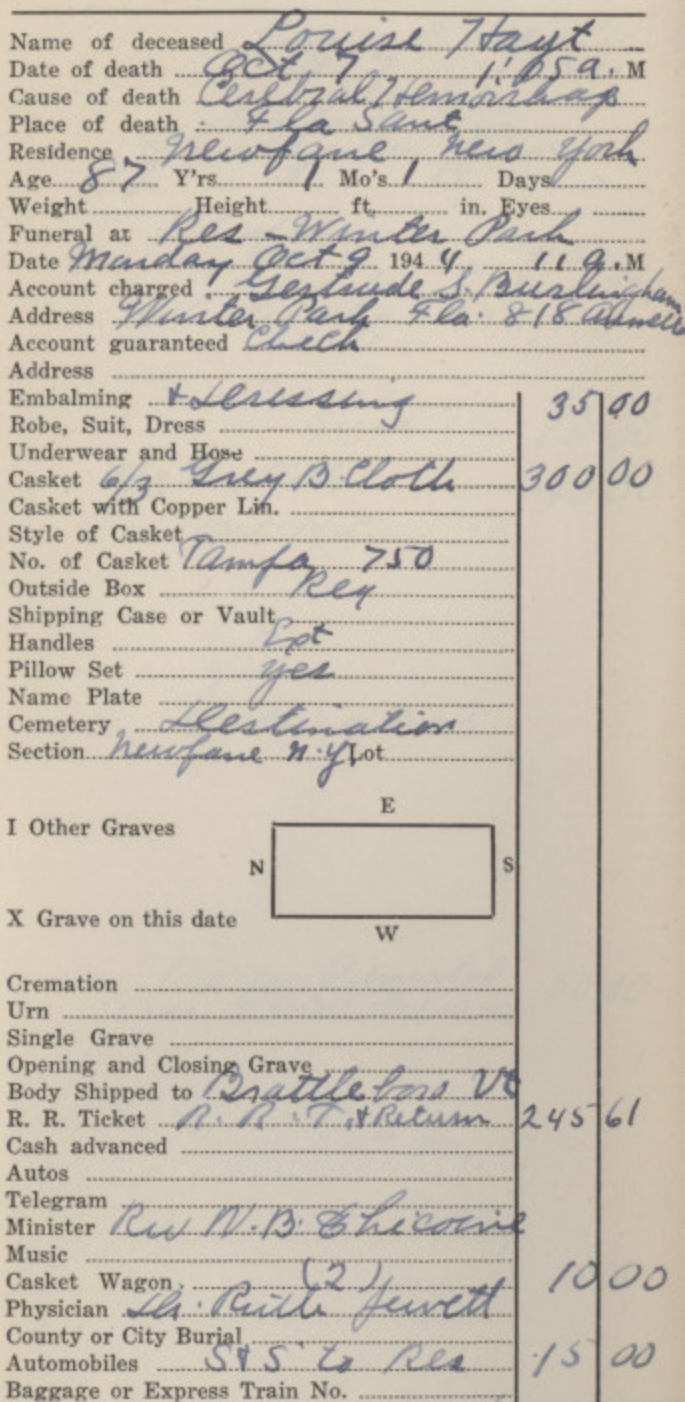 Name of deceased Louise Hayt
Date of death Oct 7 1:05 a. M
Cause of death Cerebral Hemorrhag
Place of death Fla Sant
Residence Newfane, New York
Age 87 Y'rs 1 Mo's 1 Days
Weight Height ft. in. Eyes
Funeral at Res - Winter Park
Date Monday Oct 9 1944 11 a. M
Account charged Gertrude S. Burlingham
Address Winter Park Fla. 818
Account guaranteed Check
Address
Embalming & Dressing 35 00
Robe, Suit, Dress
Underwear and Hose
Casket 6/3 Grey B Cloth 300 00
Casket with Copper Lin.
Style of Casket
No. of Casket Tampa 750
Outside Box Reg
Shipping Case or Vault
Handles Ext
Pillow Set yes
Name Plate
Cemetery Destination
Section Newfane N.Y. Lot
E
I Other Graves
N S
X Grave on this date
W
Cremation
Urn
Single Grave
Opening and Closing Grave
Body Shipped to Brattleboro Vt
R. R. Ticket R. R. T. & Return 245 61
Cash advanced
Autos
Telegram
Minister Rev N. B. Chicoine
Music
Casket Wagon (2) 10 00
Physician Dr. Ruth Jewett
County or City Burial
Automobiles S & S to Res 15 00
Baggage or Express Train No.